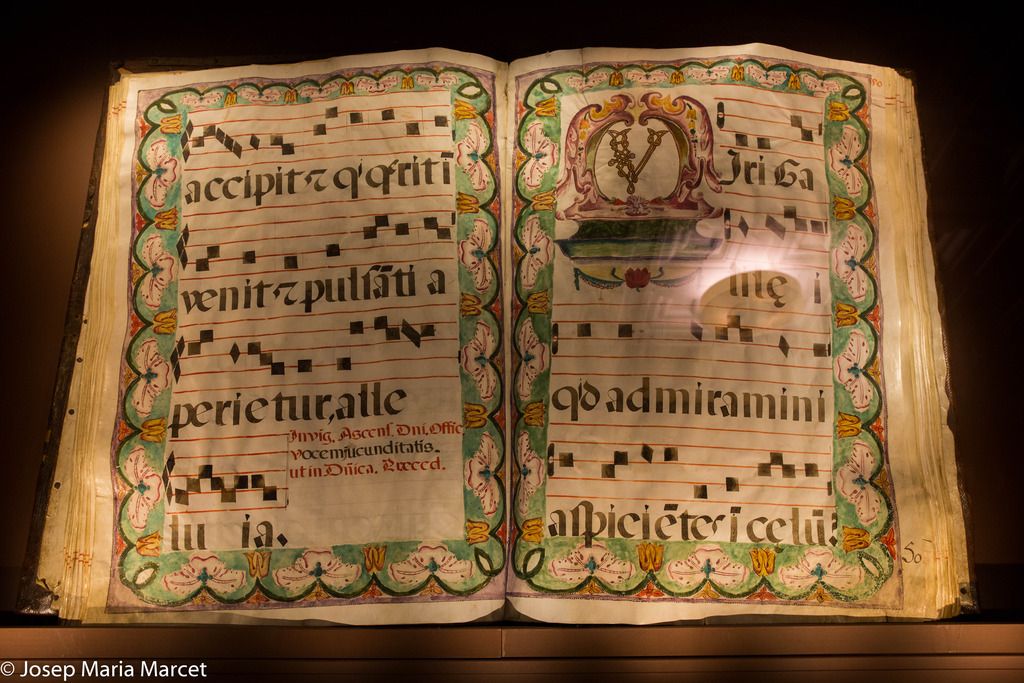 accipit ⁊ q' q̃riti
venit ⁊ pulsãti a
perietur, alle
Invig, Ascens, Dni, Offic
Vocem jucunditatis.
ut in Dñica. Præced.
lu ia.
V Iri Ga
lilę i
qd admiramini
aspiciẽtes ĩ celũ?
80
© Josep Maria Marcet